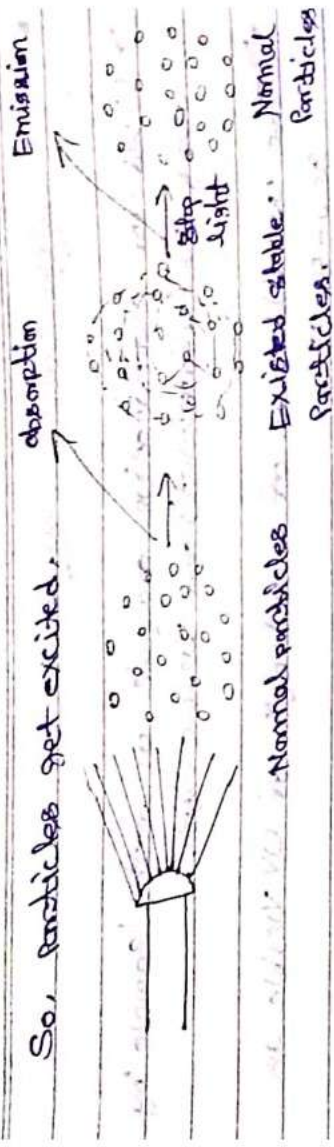 So, particles get excited.
absorption
Emission
stop
light
Normal particles
Existed stable
Particles.
Normal
Particles